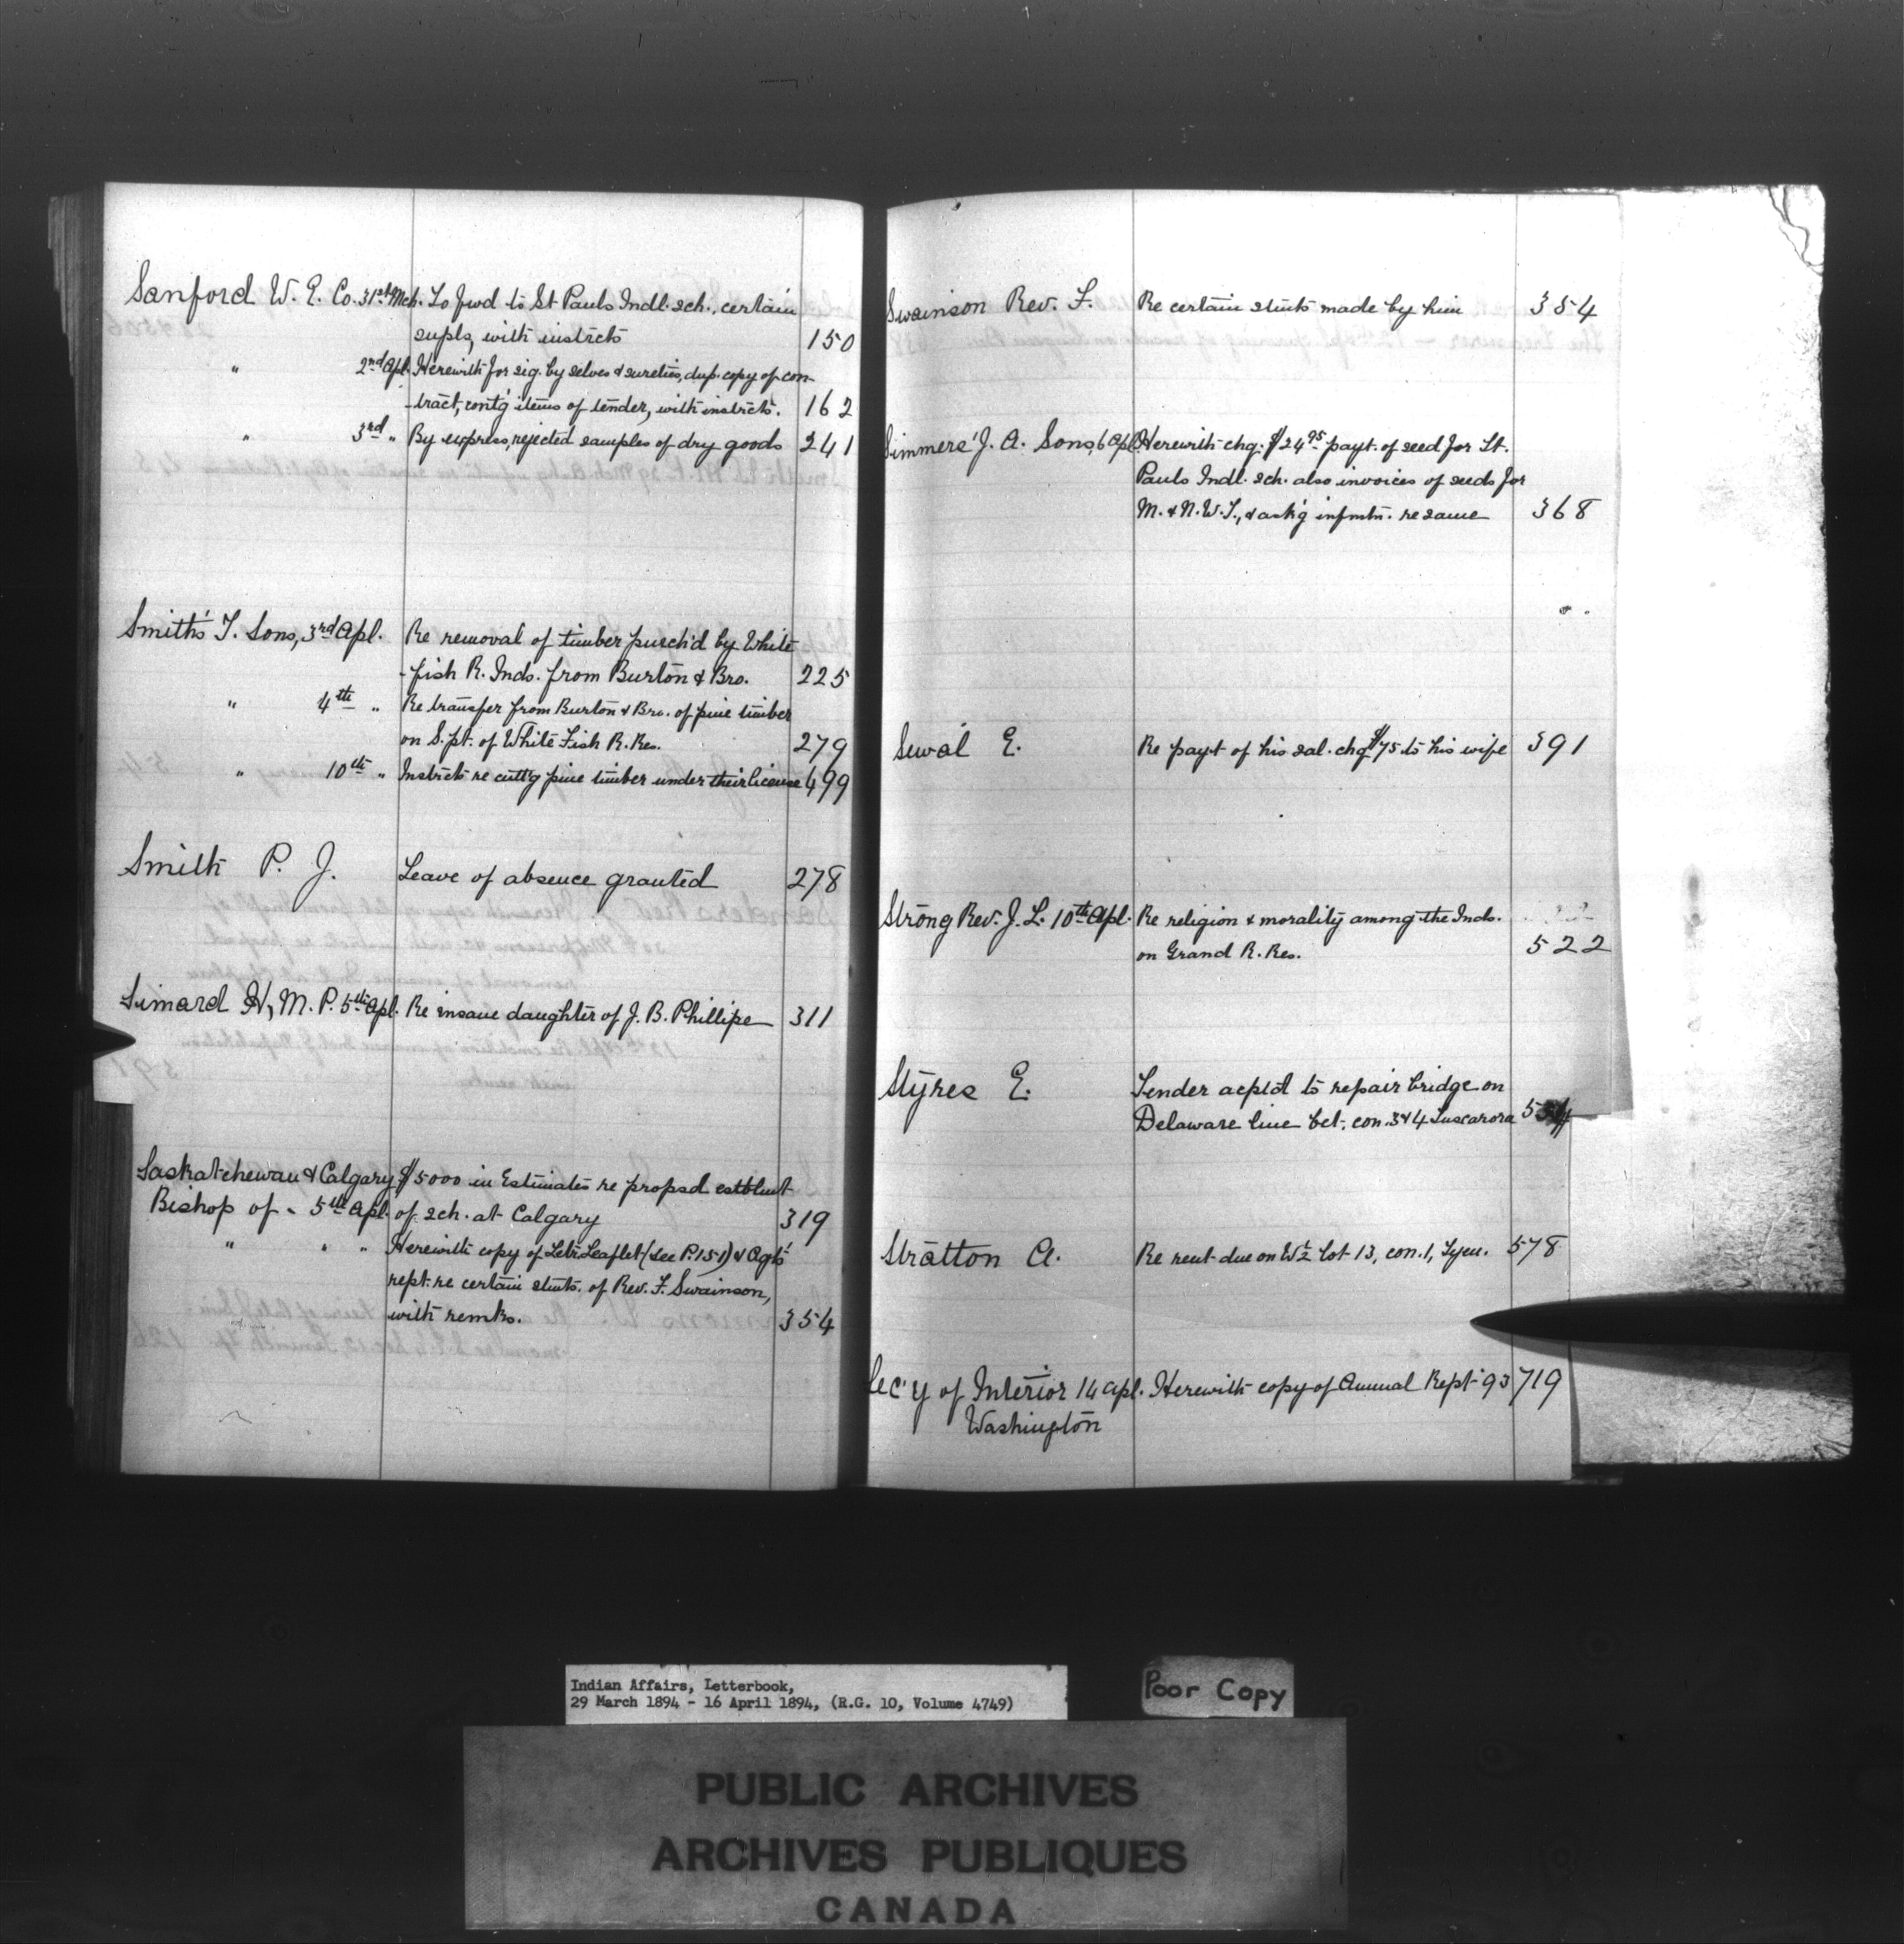 Sanford W. E. Co. 31st Mch. To fwd to St Pauls Indl. sch., certain
supls, with instrcts 150
" 2nd Apl. Herewith for sig. by selves & sureties, dup. copy of con-
-tract, contg items of tender, with instrcts. 162
" 3rd " By express, rejected samples of dry goods 241
Smith's T. Sons, 3rd Apl. Re removal of timber purch'd by White
-fish R. Inds. from Burton & Bro. 225
" 4th " Re transfer from Burton & Bro. of pine timber
on S. pt. of White Fish R. Res. 279
" 10th " Instrcts re cutt'g pine timber under their license 499
Smith P. J. Leave of absence granted 278
Simard H, M. P. 5th Apl. Re insane daughter of J. B. Phillipe 311
Saskatchewan & Calgary $5000 in Estimates re propsd estblmt
Bishop of - 5th Apl. of sch. at Calgary 319
" " " Herewith copy of Letr. Leaflet (see P. 151) & Agt's
rept. re certain stmts. of Rev. F. Swainson,
with remks. 354
Swainson Rev. F. Re certain stmts made by him 354
Simmers' J. A. Sons, 6 Apl. Herewith chq. $24.95 payt. of seed for St.
Pauls Indl. sch. also invoices of seeds for
M. & N. W. T., & ask'g infmtn. re same 368
Sewal E. Re payt of his sal. chq $75 to his wife 391
Strong Rev. J. L. 10th Apl. Re religion & morality among the Inds.
on Grand R. Res. 522
Styres E. Tender acptd to repair bridge on
Delaware line bet. con. 3 & 4 Tuscarora
Stratton A. Re rent due on W½ Lot 13, con. 1, Tyen. 578
Sec'y of Interior 14 Apl. Herewith copy of Annual Rept 93 719
Washington
Indian Affairs, Letterbook,
29 March 1894 - 16 April 1894, (R.G. 10, Volume 4749)
Poor Copy
PUBLIC ARCHIVES
ARCHIVES PUBLIQUES
CANADA